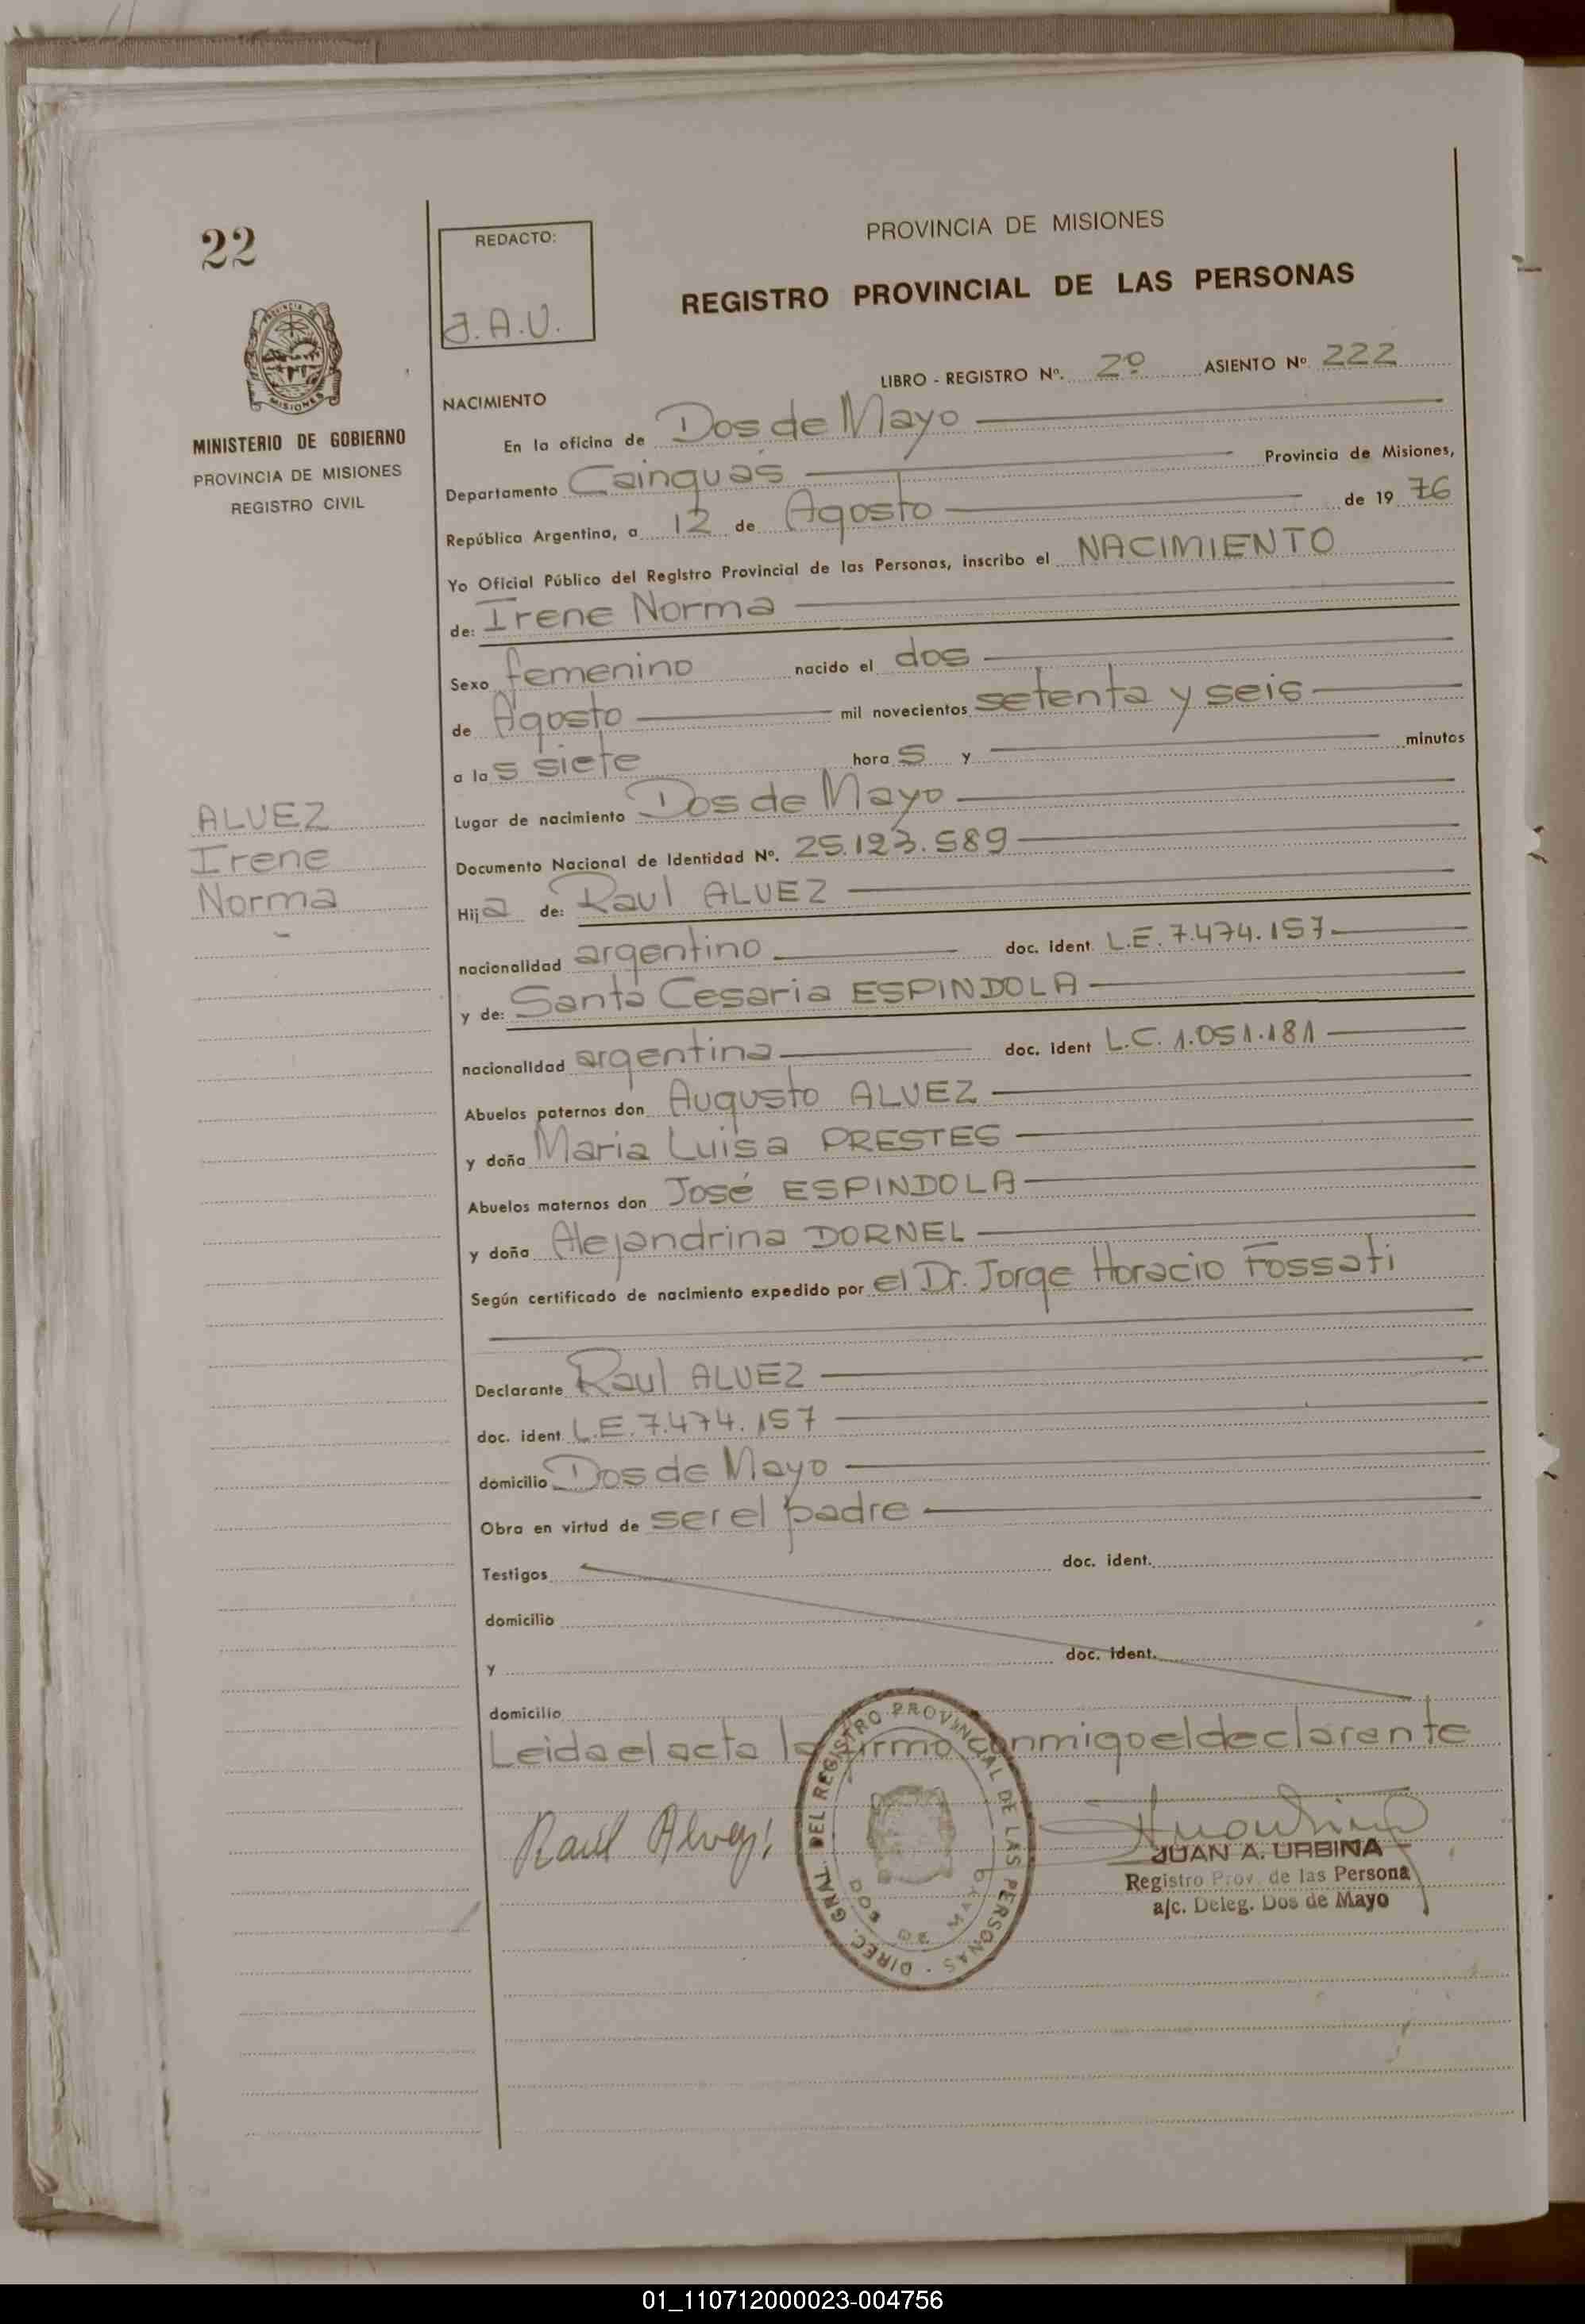 22
PROVINCIA DE MISIONES
MISIONES
MINISTERIO DE GOBIERNO
PROVINCIA DE MISIONES
REGISTRO CIVIL
ALVEZ
Irene
Norma
REDACTO:
J.A.U.
PROVINCIA DE MISIONES
REGISTRO PROVINCIAL DE LAS PERSONAS
LIBRO - REGISTRO Nº. 2º ASIENTO Nº 222
NACIMIENTO
En la oficina de Dos de Mayo
Departamento Cainguás Provincia de Misiones,
República Argentina, a 12 de Agosto de 19 76
Yo Oficial Público del Registro Provincial de las Personas, inscribo el NACIMIENTO
de: Irene Norma
Sexo femenino nacido el dos
de Agosto mil novecientos setenta y seis
a las siete horas y minutos
Lugar de nacimiento Dos de Mayo
Documento Nacional de Identidad Nº. 25.123.589
Hija de: Raul ALVEZ
nacionalidad argentino doc. Ident. L.E. 7.474.157
y de: Santa Cesaria ESPINDOLA
nacionalidad argentina doc. Ident L.C. 1.051.181
Abuelos paternos don Augusto ALVEZ
y doña Maria Luisa PRESTES
Abuelos maternos don José ESPINDOLA
y doña Alejandrina DORNEL
Según certificado de nacimiento expedido por el Dr. Jorge Horacio Fossati
Declarante Raul ALVEZ
doc. ident. L.E. 7.474.157
domicilio Dos de Mayo
Obra en virtud de ser el padre
Testigos doc. ident.
domicilio
y doc. ident.
domicilio
Leida el acta la firma conmigo el declarante
Raúl Alvez
DIREC. GRAL. DEL REGISTRO PROVINCIAL DE LAS PERSONAS -
DOS DE MAYO
JUAN A. URBINA
Registro Prov. de las Persona
a/c. Deleg. Dos de Mayo
01_110712000023-004756